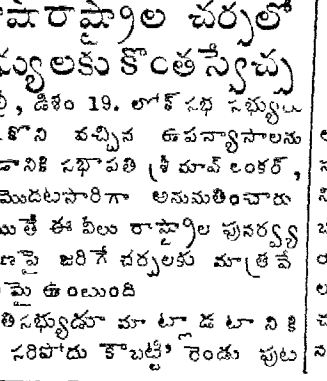 షారాష్ట్రాల చర్చలో
స్యులకు కొంతస్వేచ్ఛ
లీ, డిశం 19. లోక్ సభ సభ్యులు
కొని వచ్చిన ఉపన్యాసాలను
డానికి సభాపతి శ్రీ మావ్ లంకర్,
మొదటసారిగా అనుమతించారు
యితే ఈ వీలు రాష్ట్రాల పునర్వ్య
ణపై జరిగే చర్చలకు మాత్రమే
మై ఉంటుంది
తిసభ్యుడూ మాట్లాడటానికి
సరిపోదు కాబట్టి రెండు పుట